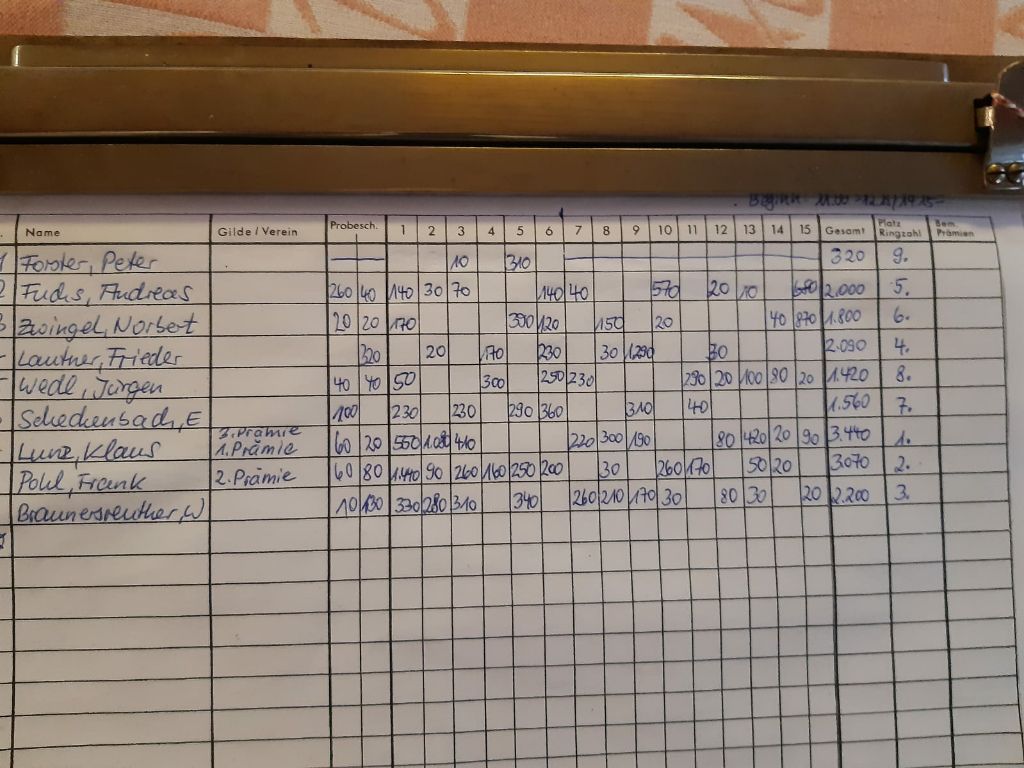 Beginn: 11.00
Name Gilde / Verein Probesch. 1 2 3 4 5 6 7 8 9 10 11 12 13 14 15 Gesamt Platz Ringzahl Bem. Prämien
Forster, Peter 10 310 320 9.
Fuchs, Andreas 260 40 140 30 70 140 40 570 20 10 680 2.000 5.
Zwingel, Norbert 20 20 170 390 120 150 20 40 870 1.800 6.
Lautner, Frieder 320 20 170 230 30 1290 30 2.090 4.
Wedl, Jürgen 40 40 50 300 250 230 290 20 100 90 20 1.420 8.
Scheckenbach, E 100 230 230 290 360 310 40 1.560 7.
3. Prämie
Lunz, Klaus 1. Prämie 60 20 550 1.080 410 220 300 190 80 420 20 90 3.440 1.
Pohl, Frank 2. Prämie 60 80 1.440 90 260 160 250 200 30 260 170 50 20 3.070 2.
Braunersreuther, W 10 130 330 280 310 340 260 210 170 30 80 30 20 2.200 3.